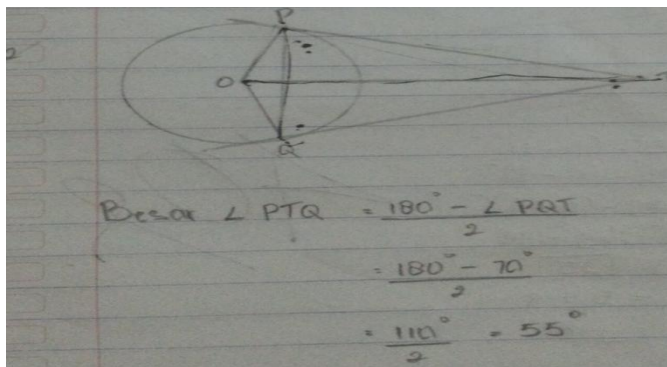 P
O
Q
Besar ∠ PTQ = 180° - ∠ PQT
2
= 180° - 70°
2
= 110° = 55°
2